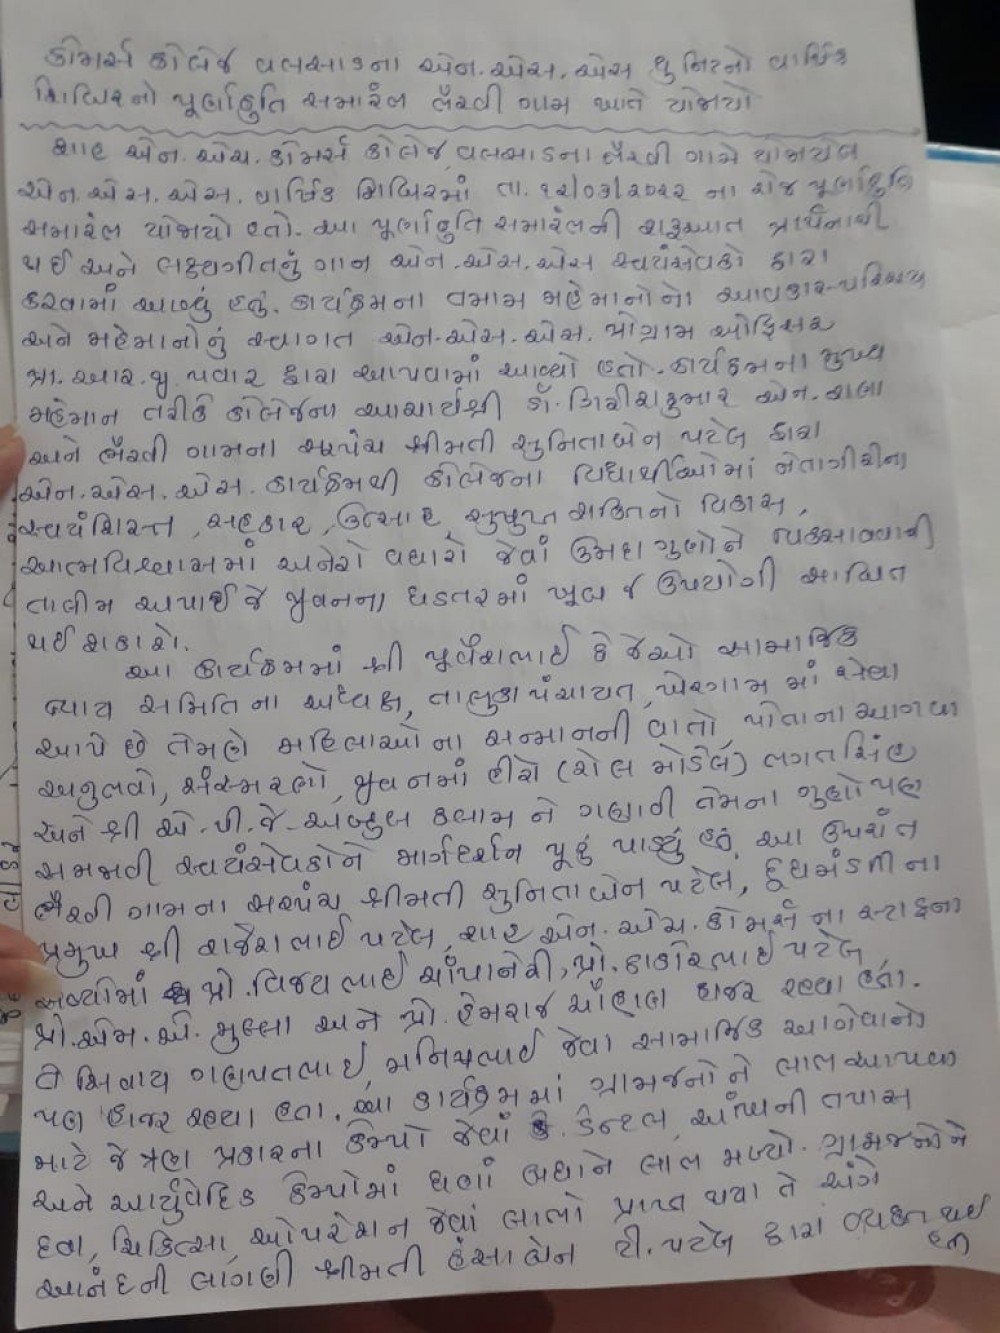 કોમર્સ કોલેજ વલસાડના એન.એસ.એસ યુનિટનો વાર્ષિક
શિબિરનો પૂર્ણાહુતિ સમારંભ ભૈરવી ગામ ખાતે યોજાયો
શાહ એન.એચ.કોમર્સ કોલેજ, વલસાડના ભૈરવી ગામે યોજાયેલ
એન.એસ.એસ. વાર્ષિક શિબિરમાં તા. ૧૨/૦૩/૨૦૨૨ ના રોજ પૂર્ણાહુતિ
સમારંભ યોજાયો હતો. આ પૂર્ણાહુતિ સમારંભની શરૂઆત પ્રાર્થનાથી
થઈ અને લક્ષ્યગીતનું ગાન એન.એસ.એસ સ્વયંસેવકો દ્વારા
કરવામાં આવ્યું હતું. કાર્યક્રમના તમામ મહેમાનોનો આવકાર-પરિચય
અને મહેમાનોનું સ્વાગત એન.એસ.એસ. પ્રોગ્રામ ઓફિસર
પ્રા. આર.જી. પવાર દ્વારા આપવામાં આવ્યો હતો. કાર્યક્રમના મુખ્ય
મહેમાન તરીકે કોલેજના આચાર્યશ્રી ડૉ. ગિરીશકુમાર એન. રાણા
અને ભૈરવી ગામના સરપંચ શ્રીમતી સુનિતાબેન પટેલ દ્વારા
એન.એસ.એસ. કાર્યક્રમથી કોલેજના વિદ્યાર્થીઓમાં નેતાગીરીના
સ્વયંશિસ્ત, સહકાર, ઉત્સાહ, સુષુપ્ત શક્તિનો વિકાસ,
આત્મવિશ્વાસમાં અનેરો વધારો જેવાં ઉમદા ગુણોને વિકસાવવાની
તાલીમ અપાઈ જે જીવનના ઘડતરમાં ખૂબ જ ઉપયોગી સાબિત
થઈ શકાશે.
આ કાર્યક્રમમાં શ્રી પૂર્વેશભાઈ કે જેઓ સામાજિક
ન્યાય સમિતિના અધ્યક્ષ, તાલુકા પંચાયત, ખેરગામ માં સેવા
આપે છે તેમણે મહિલાઓના સન્માનની વાતો, પોતાના આગવા
અનુભવો, સંસ્મરણો, જીવનમાં હીરો (રોલ મોડેલ) ભગતસિંહ
અને શ્રી એ.પી.જે-અબ્દુલ કલામ ને ગણાવી તેમના ગુણો પણ
સમજાવી સ્વયંસેવકોને માર્ગદર્શન પૂરું પાડ્યું હતું. આ ઉપરાંત
ભૈરવી ગામના સરપંચ શ્રીમતી સુનિતાબેન પટેલ, દૂધમંડળીના
પ્રમુખ શ્રી રાજેશભાઈ પટેલ, શાહ એન.એચ.કોમર્સ ના સ્ટાફના
સભ્યોમાં પ્રો. વિજયભાઈ ચાંપાનેરી, પ્રો. ઠાકોરભાઈ પટેલ,
પ્રો.એમ.એ. મુલ્લા અને પ્રો. હેમરાજ ચૌહાણ હાજર રહ્યા હતા.
તે સિવાય ગણપતભાઈ, મનિષભાઈ જેવા સામાજિક આગેવાનો
પણ હાજર રહ્યા હતા. આ કાર્યક્રમમાં ગ્રામજનોને લાભ આપવા
માટે જે ત્રણ પ્રકારના કેમ્પો જેવાં કે ડેન્ટલ, આંખની તપાસ
અને આર્યુવેદિક કેમ્પોમાં ઘણાં બધાને લાભ મળ્યો. ગ્રામજનોને
દવા, ચિકિત્સા, ઓપરેશન જેવાં લાભો પ્રાપ્ત થયા તે અંગે
આનંદની લાગણી શ્રીમતી હંસાબેન ટી. પટેલ દ્વારા વ્યક્ત થઈ
હતી